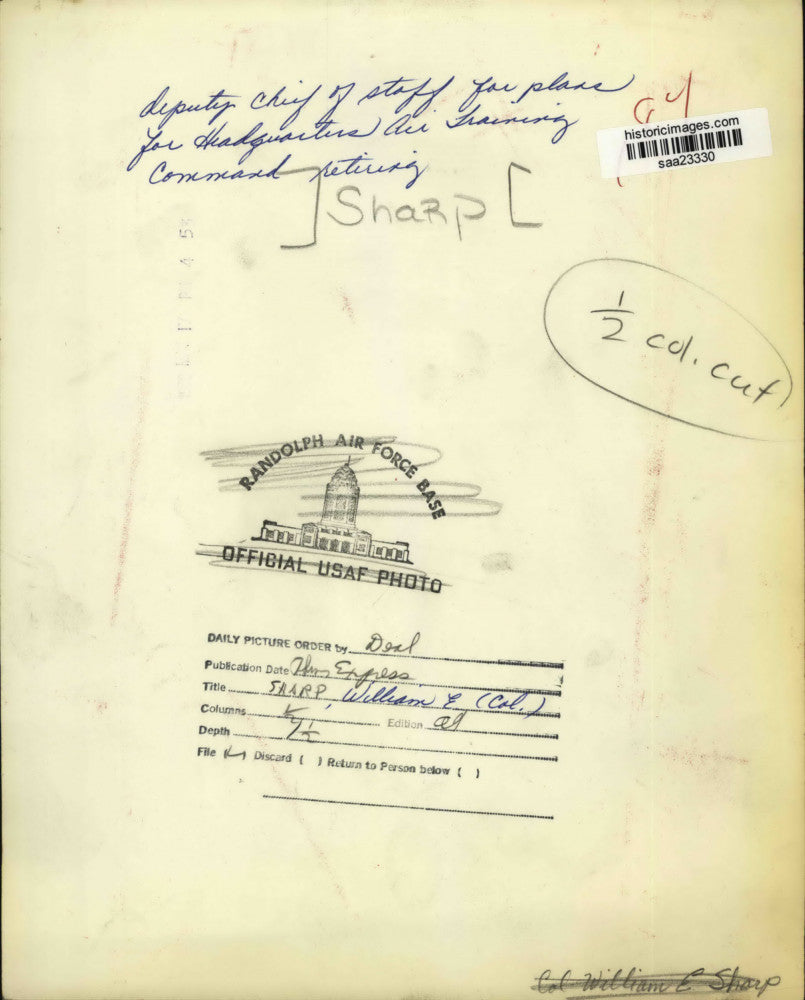 deputy chief of staff for plans
for Headquarters Air Training
Command retiring
historicimages.com
saa23330
] Sharp [
1/2 col. cut
RANDOLPH AIR FORCE BASE
OFFICIAL USAF PHOTO
DAILY PICTURE ORDER by Deal
Publication Date Thurs Express
Title SHARP, William E (Col.)
Columns 1/2
Edition
Depth
File (✓) Discard ( ) Return to Person below ( )
Col William E Sharp